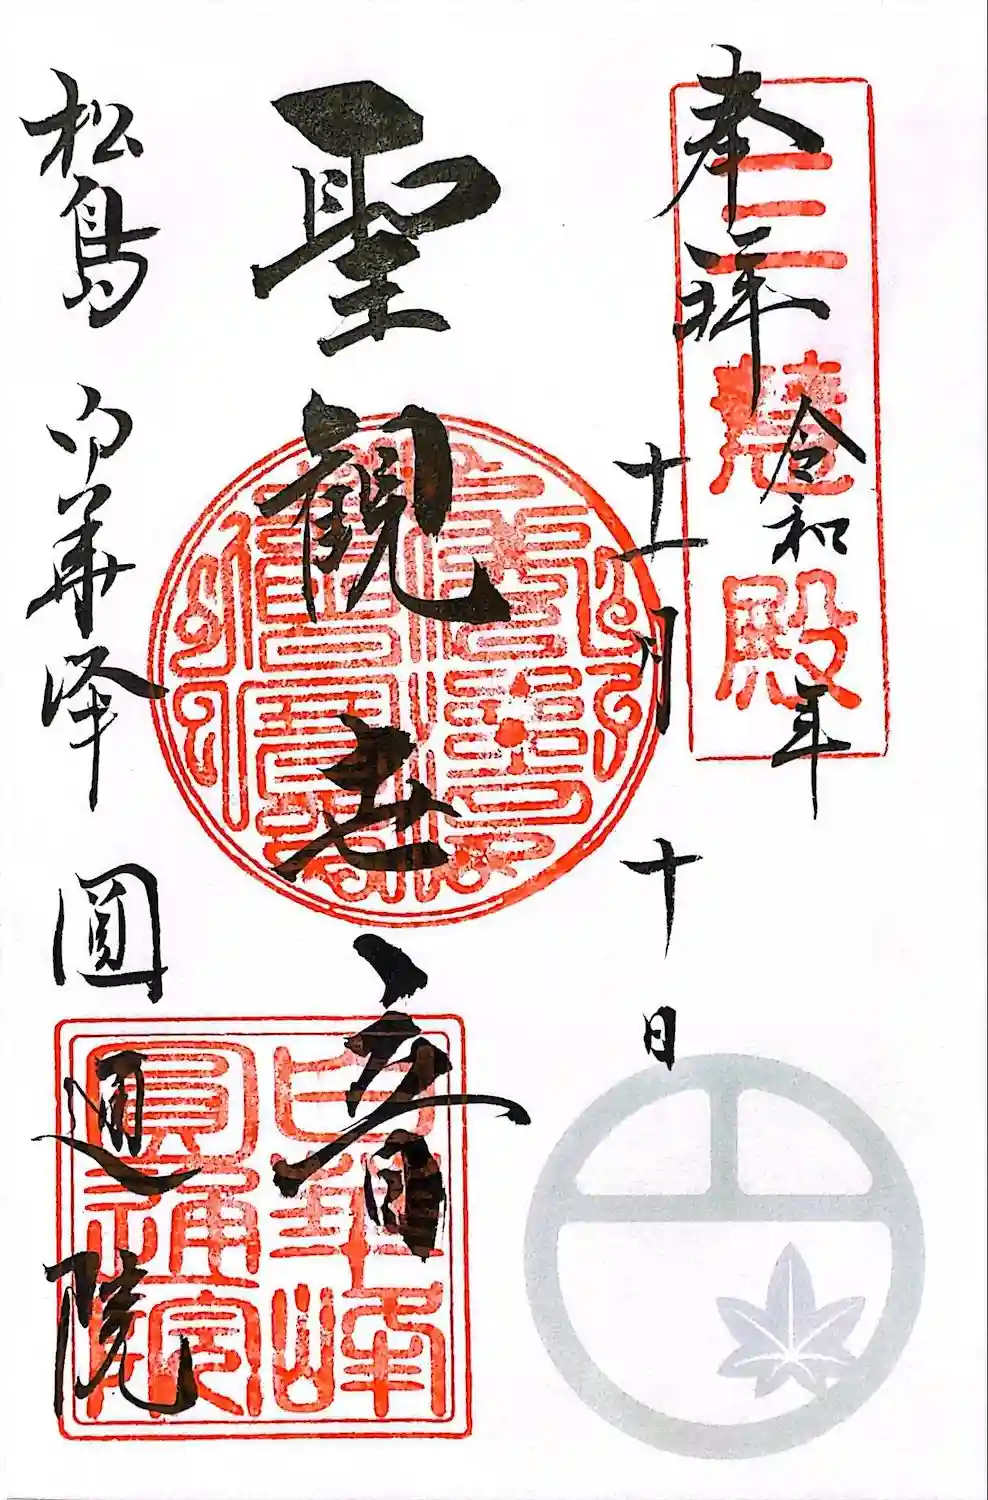 奉拝
三慧殿
令和 年
十一月 十日
聖観世音
松島 白華峰 圓通院
白華峰
圓通院